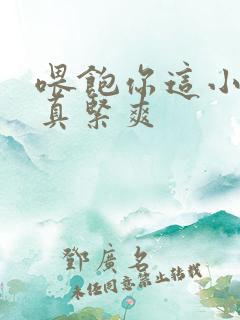 喂飽你這小
真緊爽
鄧廣名
未经同意禁止转载